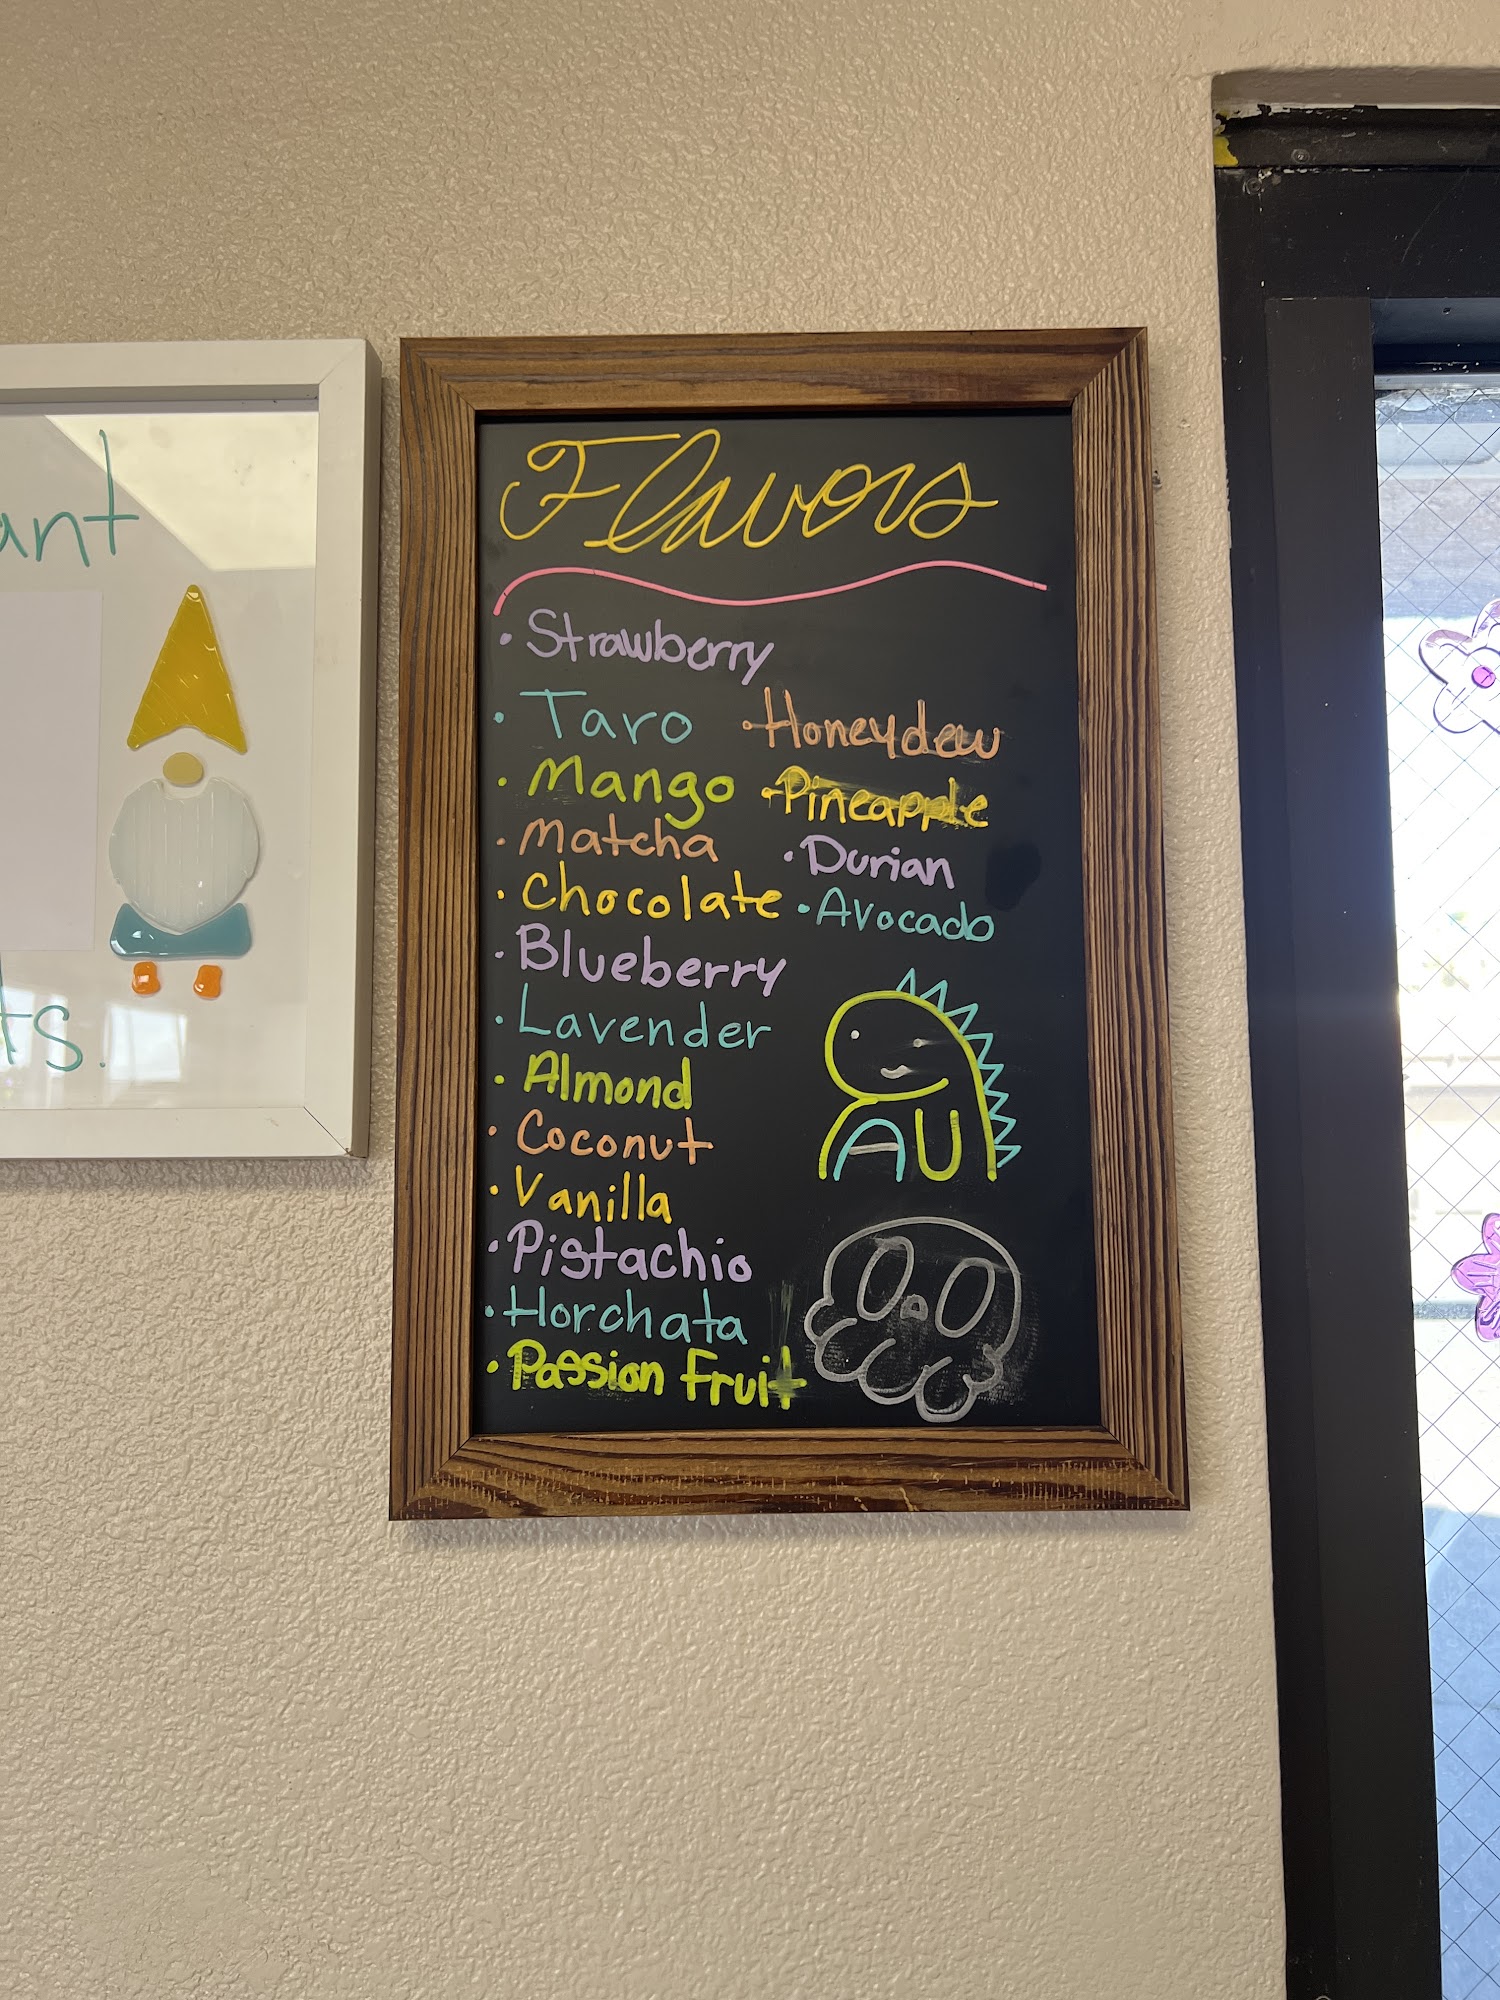 Flavors
• Strawberry
• Taro
• Mango
• Matcha
• Chocolate
• Blueberry
• Lavender
• Almond
• Coconut
• Vanilla
• Pistachio
• Horchata
• Passion Fruit
• Honeydew
• Pineapple
• Durian
• Avocado
ant
ts.